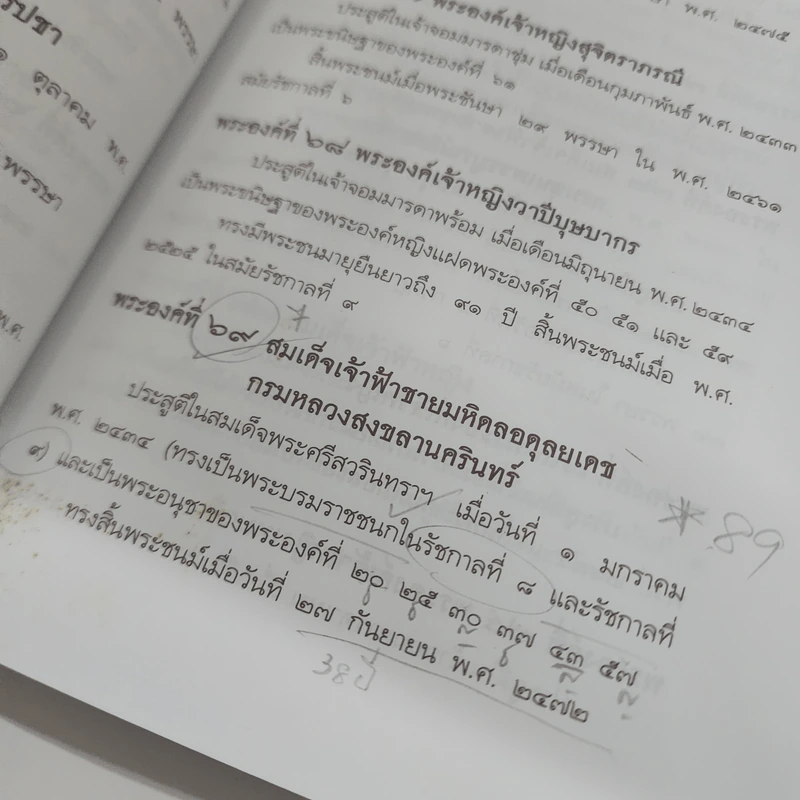 รปชา
๑ ตุลาคม พ.ศ.
พรรษา
พ.ศ.
พ.ศ. ๒๔๗๕
พระองค์เจ้าหญิงสุจิตราภรณี
ประสูติในเจ้าจอมมารดาชุ่ม เมื่อเดือนกุมภาพันธ์ พ.ศ. ๒๔๓๓
เป็นพระขนิษฐาของพระองค์ที่ ๖๑
สิ้นพระชนม์เมื่อพระชันษา ๒๙ พรรษา ใน พ.ศ. ๒๔๖๑
สมัยรัชกาลที่ ๖
พระองค์ที่ ๖๘ พระองค์เจ้าหญิงวาปีบุษบากร
ประสูติในเจ้าจอมมารดาพร้อม เมื่อเดือนมิถุนายน พ.ศ. ๒๔๓๔
เป็นพระขนิษฐาของพระองค์หญิงแฝดพระองค์ที่ ๕๐ ๕๑ และ ๕๙
ทรงมีพระชนมายุยืนยาวถึง ๙๑ ปี สิ้นพระชนม์เมื่อ พ.ศ.
๒๕๒๕ ในสมัยรัชกาลที่ ๙
พระองค์ที่ ๖๙ * สมเด็จเจ้าฟ้าชายมหิดลอดุลยเดช
กรมหลวงสงขลานครินทร์
ประสูติในสมเด็จพระศรีสวรินทราฯ เมื่อวันที่ ๑ มกราคม
พ.ศ. ๒๔๓๔ (ทรงเป็นพระบรมราชชนกในรัชกาลที่ ๘ และรัชกาลที่
๙) และเป็นพระอนุชาของพระองค์ที่ ๒๐ ๒๕ ๓๐ ๓๗ ๔๓ ๕๗
ทรงสิ้นพระชนม์เมื่อวันที่ ๒๗ กันยายน พ.ศ. ๒๔๗๒
* 89
38 ปี